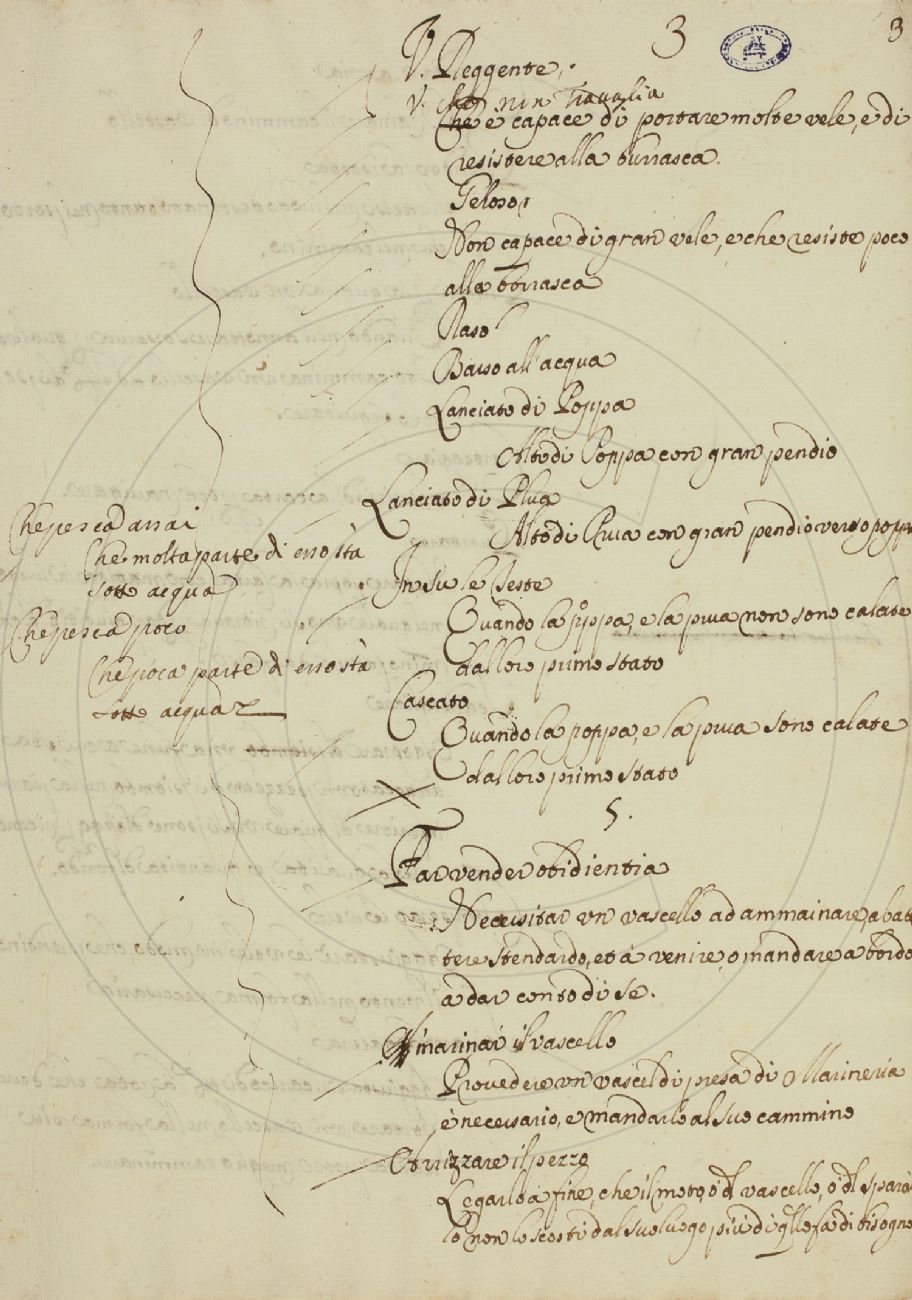 3 3
V. Reggente,
V. che non travaglia
Che è capace di portare molte vele, e di
resistere alla burrasca.
Geloso,
Non capace di gran vele, e che resiste poco
alla borrasca
Raso
Basso all'acqua
Lanciato di Poppa
Alto di Poppa con gran pendio
Lanciato di Prua
Alto di Prua con gran pendio verso poppa
In su le Teste
Quando la poppa, e la prua non sono calate
dal loro primo stato
Cascato
Quando la poppa, e la prua sono calate
dal loro primo stato
Che pesca assai
Che molta parte di esso stà
sotto acqua
Che pesca poco
Che poca parte di esso stà
sotto acqua
5.
Far render obidientia
Necessitar un vascello ad ammainare, abat
tere stendardo, et à venire, o mandare a bordo
a dar conto di se.
Amarinar il vascello
Provedere un vascel di presa di Marineria
è necessario, e mandarlo al suo cammino
Arrizzare il pezzo
Legarlo à fine, che il moto, ò dl vascello, ò dl sparar
lo non lo scosti dal suo luogo più di qllo fà di bisogno